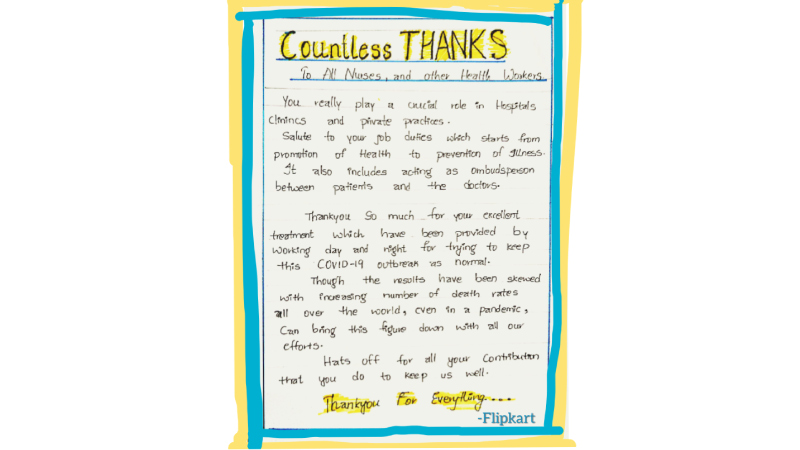 Countless THANKS
To All Nurses, and other Health Workers
You really play a crucial role in Hospitals
Clinincs and private practices.
Salute to your job duties which starts from
promotion of Health to prevention of Illness.
It also includes acting as ombudsperson
between patients and the doctors.
Thankyou So much for your excellent
treatment which have been provided by
working day and night for trying to keep
this COVID-19 outbreak as normal.
Though the results have been skewed
with increasing number of death rates
all over the world, even in a pandemic,
Can bring this figure down with all our
efforts.
Hats off for all your Contributon
that you do to keep us well.
Thankyou For Everything...
-Flipkart